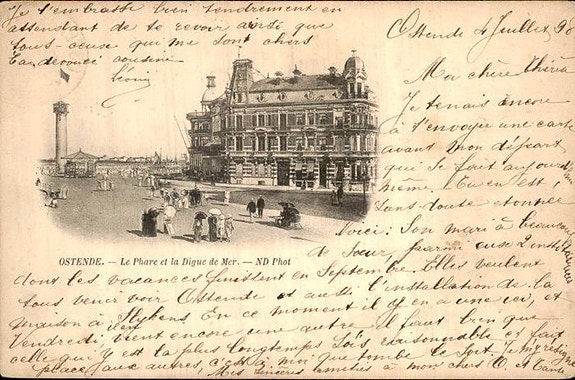 Ostende 4 Juillet 98
Ma chère
Je tenais encore
à t'envoyer une carte
avant mon départ
qui se fait aujourd'
même. Tu en est,
sans doute etonnée
Voici: Son mari à beaucoup
de soeur, parmi
dont les vacances finissent en Septembre. Elles veulent
tous venir voir Ostende et aussi l'installation de la
maison à En ce moment il y en a une ici, et
Vendredi, vient encore une autre. Il faut bien que
celle qui y est la plus longtemps soit raisonnable et fait
place aux autres, c'est à moi que tombe le sort. Je m'y résigne
Mes sincères amitiés à mon cher O. et
Je t'embrasse bien tendrement en
attendant de te revoir ainsi que
tous ceux qui me sont chers
Ta devouée cousine
OSTENDE. — Le Phare et la Digue de Mer. — ND Phot